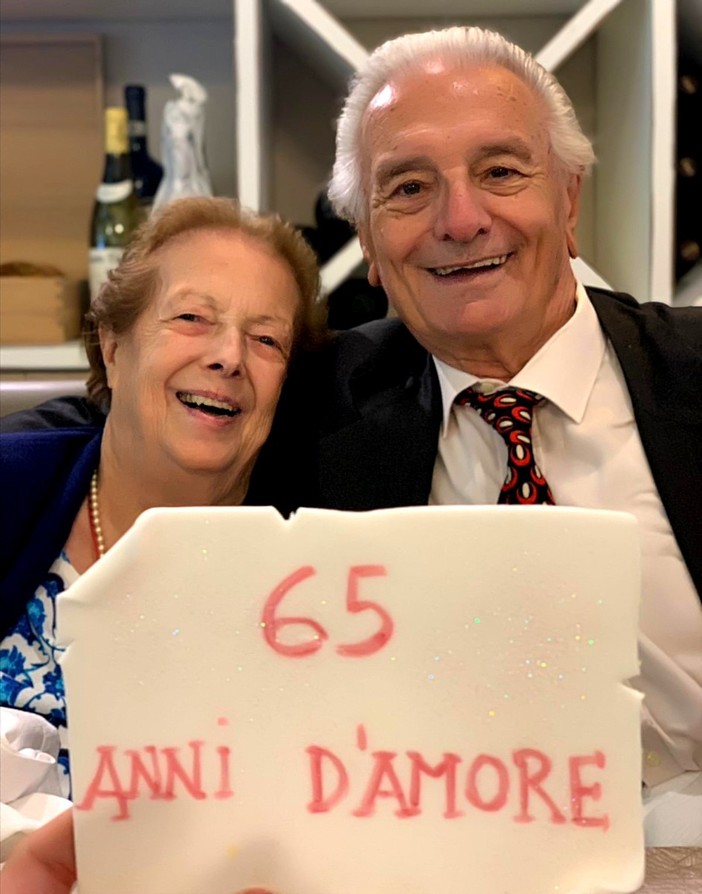 65
ANNi D'AMORE